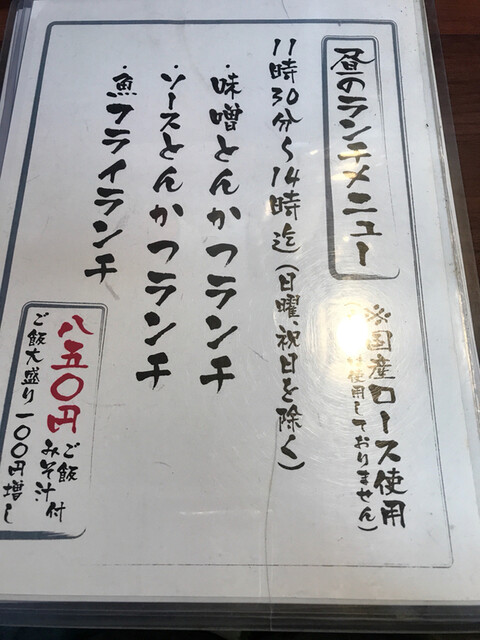 昼のランチメニュー
※国産ロース使用
使用しておりません)
11時30分〜14時迄(日曜、祝日を除く)
・味噌とんかつランチ
・ソースとんかつランチ
・魚フライランチ
八五〇円
ご飯
みそ汁付
ご飯大盛り一〇〇円増し